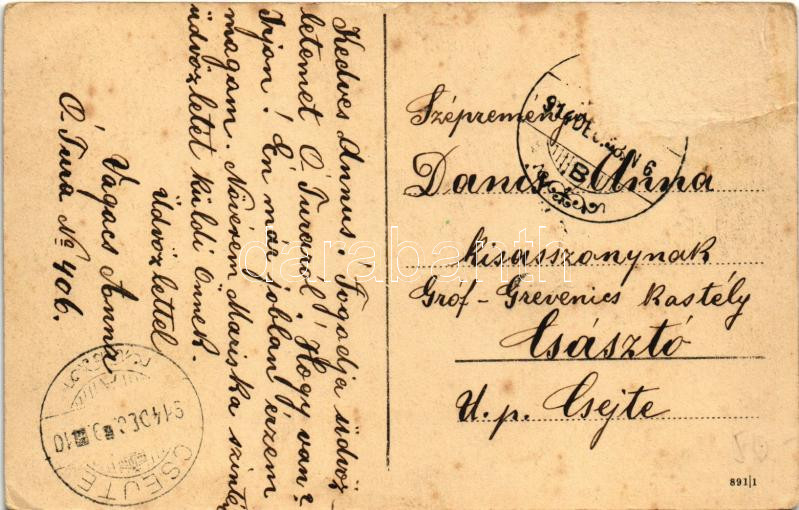 Kedves Annus. Fogadja üdvöz-
letemet Ó Turáról! Hogy van?
Irjon! Én már jobban érzem
magam. Nővérem Mariska szintén
üdvözletét küldi Önnek.
Üdvözlettel
Vagács Anna
Ó Tura № 406.
Szépreményű
Dancs Anna
kisasszonynak
Gróf-Grevenics kastély
Császtó
U. p. Csejte
B
CSEJTE
914 DEC
891/1
darabanth